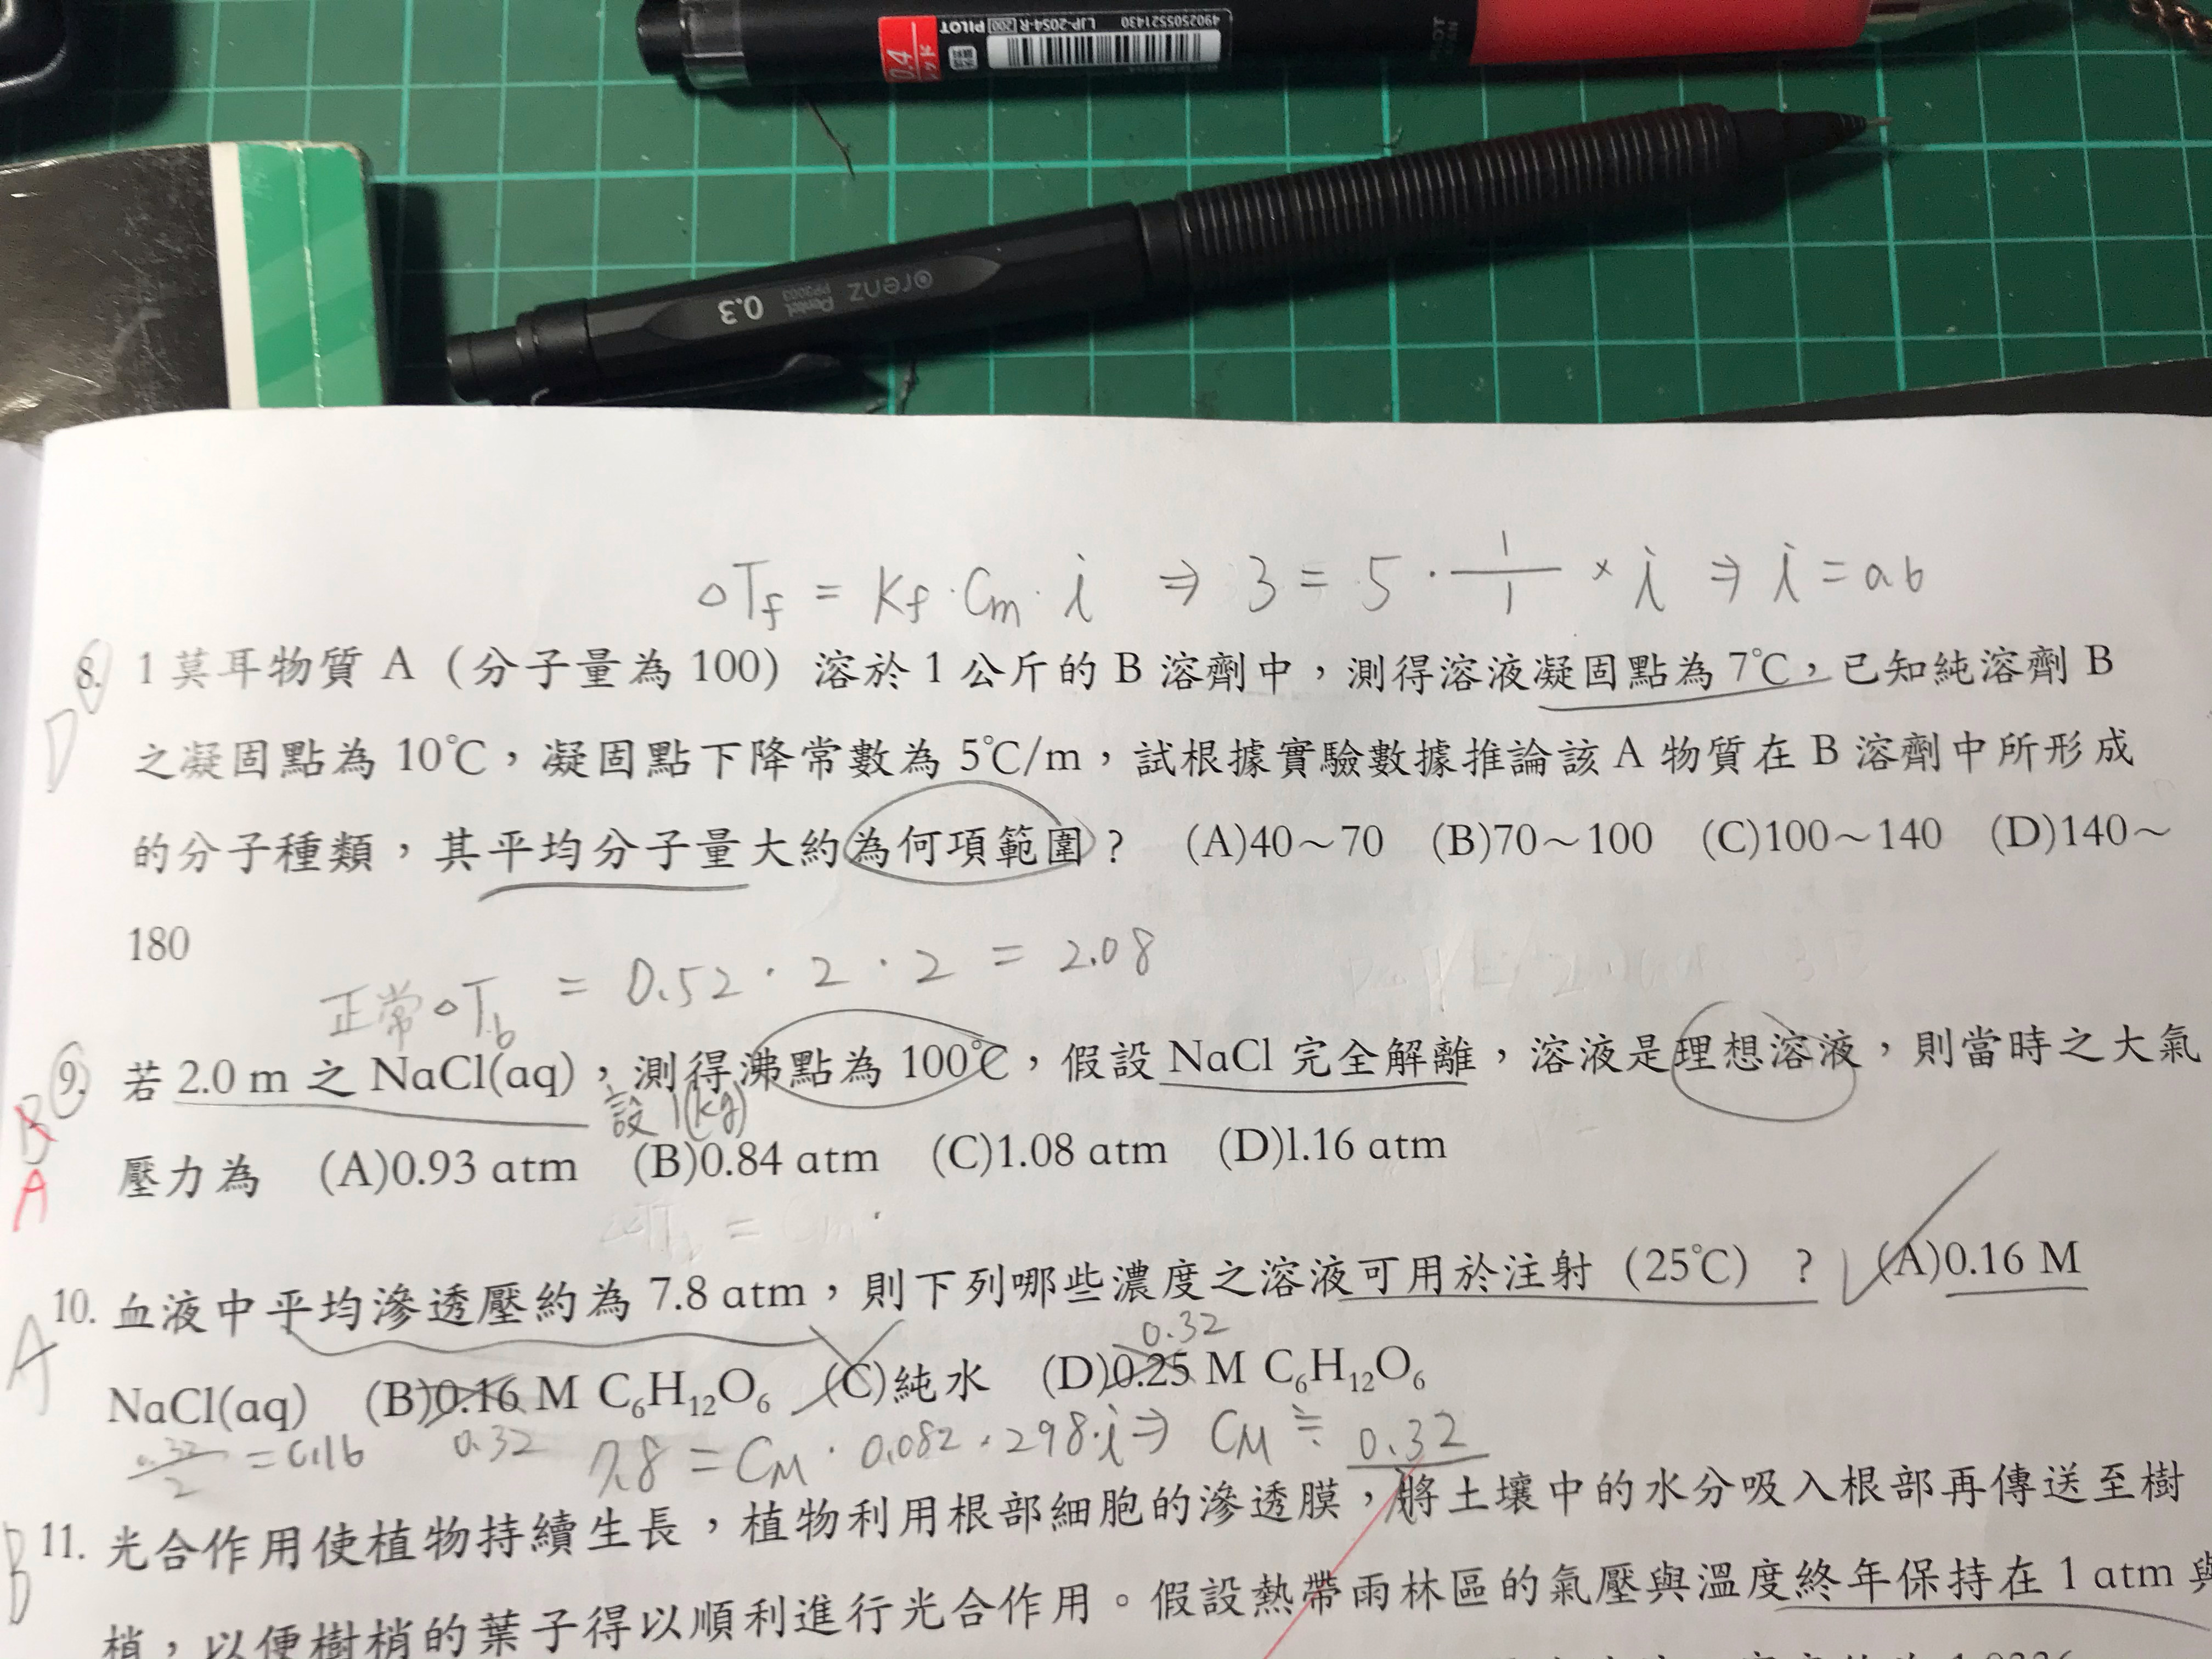 4902505521430
LJP-20S4-R
PILOT
0.4
0.3
Pentel
PP3003
orenz
△Tf = Kf · Cm · i ⇒ 3 = 5 · 1/1 × i ⇒ i = 0.6
8. 1 莫耳物質 A（分子量為 100）溶於 1 公斤的 B 溶劑中，測得溶液凝固點為 7℃，已知純溶劑 B
D
之凝固點為 10℃，凝固點下降常數為 5℃/m，試根據實驗數據推論該 A 物質在 B 溶劑中所形成
的分子種類，其平均分子量大約為何項範圍？ (A)40～70 (B)70～100 (C)100～140 (D)140～
180
正常△Tb = 0.52 · 2 · 2 = 2.08
9. 若 2.0 m 之 NaCl(aq)，測得沸點為 100℃，假設 NaCl 完全解離，溶液是理想溶液，則當時之大氣
B
設 1(kg)
A
壓力為 (A)0.93 atm (B)0.84 atm (C)1.08 atm (D)1.16 atm
10. 血液中平均滲透壓約為 7.8 atm，則下列哪些濃度之溶液可用於注射（25℃）？ (A)0.16 M
A
0.32
NaCl(aq) (B)0.16 M C₆H₁₂O₆ (C)純水 (D)0.25 M C₆H₁₂O₆
0.32/2 = 0.16 0.32 7.8 = CM · 0.082 · 298 · i ⇒ CM ≒ 0.32
11. 光合作用使植物持續生長，植物利用根部細胞的滲透膜，將土壤中的水分吸入根部再傳送至樹
B
梢，以便樹梢的葉子得以順利進行光合作用。假設熱帶雨林區的氣壓與溫度終年保持在 1 atm 與